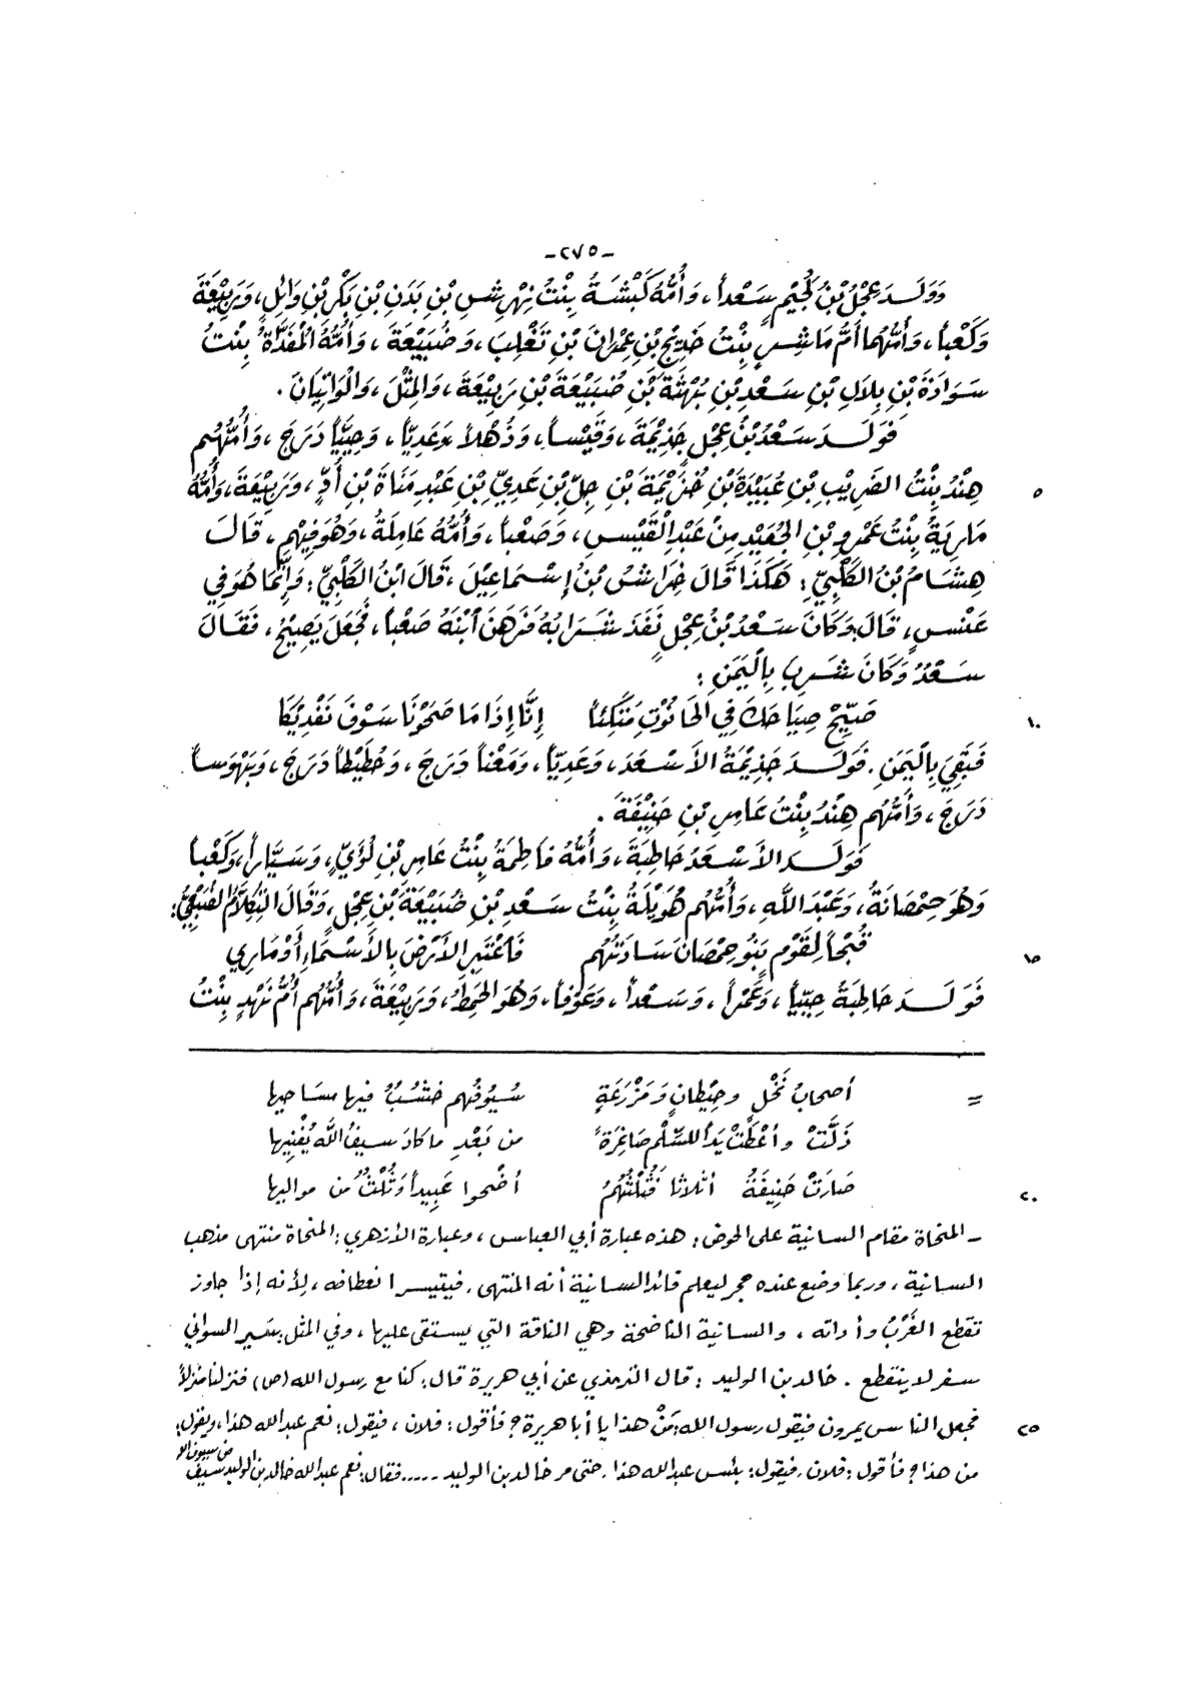 -٢٧٥-
وَوَلَدَ عِجْلُ بْنُ لُجَيْمٍ سَعْداً، وَأُمُّهُ كَبْشَةُ بِنْتُ نِهْرِشِ بْنِ بَدَنِ بْنِ بَكْرِ بْنِ وَائِلٍ، وَرَبِيْعَةَ
وَكَعْباً، وَأُمُّهُما أُمُّ مَاشِسٍ بِنْتُ خَدِيْجِ بْنِ عِمْرَانَ بْنِ تَغْلِبَ، وَضُبَيْعَةَ، وَأُمُّهُ المُفَدَّاةُ بِنْتُ
سَوَادَةَ بْنِ بِلَالِ بْنِ سَعْدِ بْنِ بُهْثَةَ بْنِ ضُبَيْعَةَ بْنِ رَبِيْعَةَ، وَالمِثْلَ، وَالْوَاتِيَانَ.
فَوَلَدَ سَعْدُ بْنُ عِجْلٍ جَذِيْمَةَ، وَقَيْساً، وَذُهْلاً وَعَدِيّاً، وَحِيَيّاً دَرَجَ، وَأُمُّهُم
٥ هِنْدُ بِنْتُ الضَّرِيْبِ بْنِ عُبَيْدَةَ بْنِ خُزَيْمَةَ بْنِ جِلِّ بْنِ عَدِيِّ بْنِ عَبْدِ مَنَاةَ بْنِ أُدٍّ، وَرَبِيْعَةَ، وَأُمُّهُ
مَارِيَةُ بِنْتُ عَمْرِو بْنِ الجُعَيْدِ مِنْ عَبْدِ الْقَيْسِ، وَصَعْباً، وَأُمُّهُ عَامِلَةُ، وَهُوَ فِيْهِم، قَالَ
هِشَامُ بْنُ الكَلْبِيِّ: هَكَذَا قَالَ خِرَاشُ بْنُ إِسْمَاعِيْلَ، قَالَ ابْنُ الكَلْبِيِّ: وَإِنَّمَا هُوَ فِي
عَنْسٍ، قَالَ: وَكَانَ سَعْدُ بْنُ عِجْلٍ نَفَدَ شَرَابُهُ فَرَهَنَ ابْنَهُ صَعْباً، فَجَعَلَ يَصِيْحُ، فَقَالَ
سَعْدٌ وَكَانَ شَرِبَ بِاليَمَنِ:
١٠ صَيِّحْ صِيَاحَكَ فِي الحَانُوْتِ مُتَّكِئاً إِنَّا إِذَا مَا صَحَوْنَا سَوْفَ نَفْدِيْكَا
فَبَقِيَ بِاليَمَنِ. فَوَلَدَ جَذِيْمَةُ الأَسْعَدَ، وَعَدِيّاً، وَمَعْناً دَرَجَ، وَخُطَيْطاً دَرَجَ، وَبَيْهَساً
دَرَجَ، وَأُمُّهُم هِنْدُ بِنْتُ عَامِرِ بْنِ حَنِيْفَةَ.
فَوَلَدَ الأَسْعَدُ حَاطِبَةَ، وَأُمُّهُ فَاطِمَةُ بِنْتُ عَامِرِ بْنِ لُؤَيٍّ، وَسَيَّاراً، وَكَعْباً
وَهُوَ حِمْصَانَةُ، وَعَبْدَ اللهِ، وَأُمُّهُم هُوَيْلَةُ بِنْتُ سَعْدِ بْنِ ضُبَيْعَةَ بْنِ عِجْلٍ، وَقَالَ الضُّبَعِيُّ:
١٥ قُبْحاً لِقَوْمٍ بَنُو حِمْصَانَ سَادَتُهُم فَاعْتَبِرِ الأَرْضَ بِالأَسْمَاءِ أَوْ مَارِي
فَوَلَدَ حَاطِبَةُ حِيَيّاً، وَعَمْراً، وَسَعْداً، وَعَوْفاً، وَهُوَ الخَمِطُ، وَرَبِيْعَةَ، وَأُمُّهُم أُمُّ نَهْدٍ بِنْتُ
= أصحابُ نَخْلٍ وحِيْطانٍ وَمَزْرَعَةٍ سُيُوفُهم خُشُبٌ فيها مسَاحيها
ذَلَّتْ وأعْطَتْ يَداً للسِّلْمِ صَاغِرَةً من بَعْدِ ما كادَ سيفُ اللهِ يُفْنِيها
٢٠ صَارَتْ حَنِيفَةُ أثلاثا فَثُلْثُهُمُ أضْحوا عَبِيداً وَثُلْثٌ من مواليها
- المنحاة مقام السانية على الحوض: هذه عبارة أبي العباس، وعبارة الأزهري: المنحاة منتهى مذهب
السانية، وربما وضع عنده حجر ليعلم قائد السانية أنه المنتهى. فيتيسر انعطافه، لأنه إذا جاوز
تقطع الغَرْبُ وأداته، والسانية الناضحة وهي الناقة التي يستقى عليها، وفي المثل: سَيْر السواني
سفر لا ينقطع. خالد بن الوليد: قال الترمذي عن أبي هريرة قال: كنا مع رسول الله (ص) فنزلنا منزلاً
٢٥ فجعل الناس يمرون فيقول رسول الله: مَنْ هذا يا أبا هريرة؟ فأقول: فلان، فيقول: نعم عبد الله هذا، ويقول:
من هذا؟ فأقول: فلان. فيقول: بئس عبد الله هذا. حتى مر خالد بن الوليد ..... فقال: نعم عبد الله خالد بن الوليد سيف